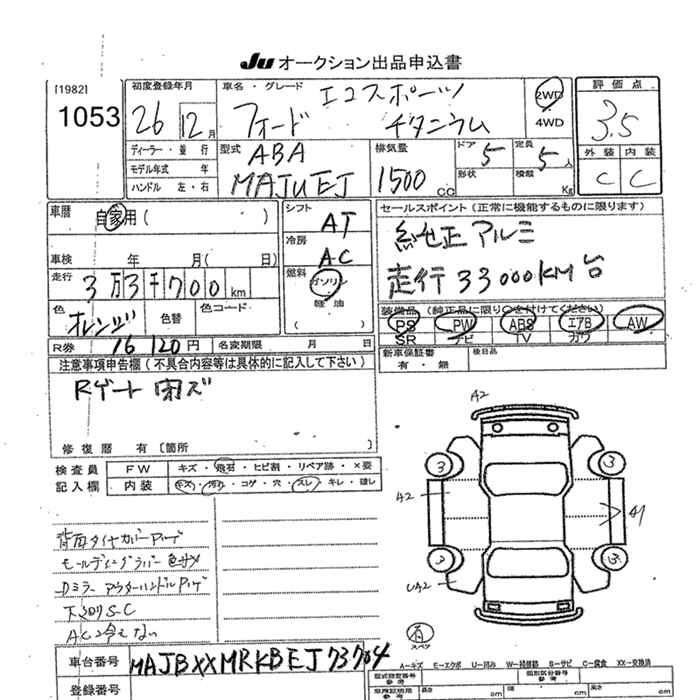 Ju オークション出品申込書
[1982]
1053
初度登録年月
26 12月
ディーラー・並行
モデル年式 年
ハンドル 左・右
車名・グレード
エコスポーツ
フォード チタニウム
2WD
4WD
型式
ABA
MAJUEJ
排気量
1500 cc
ドア 5
定員 5人
形状
積載 Kg
評価点
3.5
外装 内装
C C
車歴 自家用( )
車検 年 月( 日)
走行 3万3千700km
色 オレンジ
色替
色コード
シフト
AT
冷房
AC
燃料
ガソリン
軽油
セールスポイント(正常に機能するものに限ります)
純正アルミ
走行33000KM台
装備品(純正品に限り○を付けてください)
PS PW ABS エアB AW
SR ナビ TV カワ
R券 16120円
名変期限 月 日
新車保証書
有・無
後日品
注意事項申告欄(不具合内容等は具体的に記入して下さい)
Rゲート 閉ズ
修復歴 有〔箇所 〕
検査員
記入欄
FW キズ・飛石・ヒビ割・リペア跡・×要
内装 キズ・汚れ・コゲ・穴・スレ・キレ・破レ
背面タイヤカバー
モールディングラバー 色サメ
Dミラー アウターハンドル
下回りS・C
AC冷えない
A2
3 3
A2 A1
3 3
UA2
有
スペア
車台番号 MAJBXXMRKBEJ73764
登録番号
A-キズ E-エクボ U-凹み W-補修跡 B-サビ C-腐食 XX-交換済
型式指定番号
参考
類別区分番号
参考
長さ cm 幅 cm 高さ cm